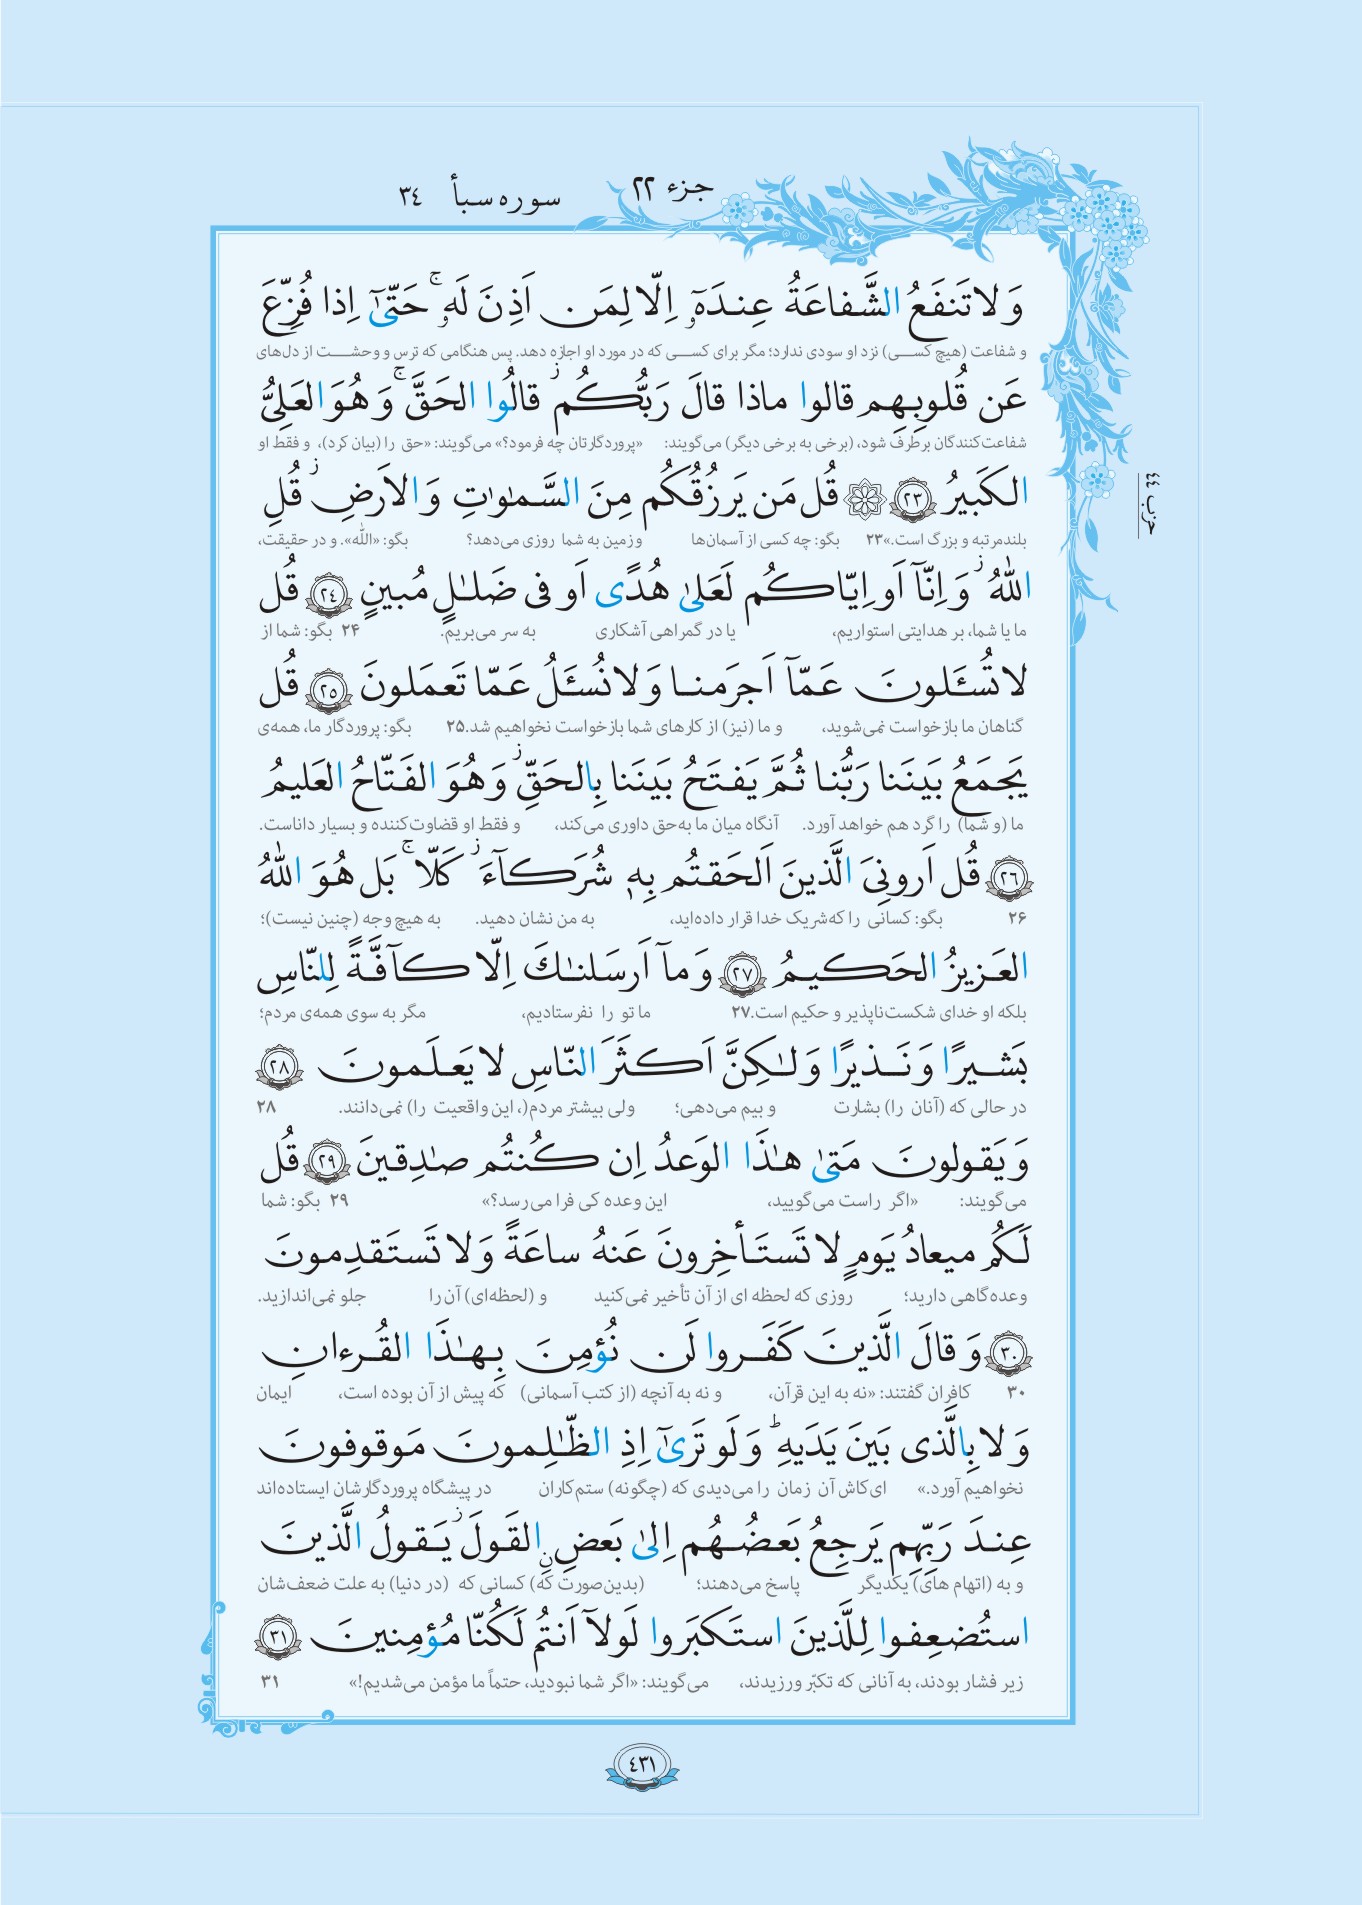 جزء ۲۲
سوره سبأ ۳٤
حزب ٤٤
وَ لا تَنفَعُ الشَّفاعَةُ عِندَهٓۥ اِلّا لِمَن اَذِنَ لَهۥۚ حَتّىٰٓ اِذا فُزِّعَ
و شفاعت (هیچ کسی) نزد او سودی ندارد؛ مگر برای کسی که در مورد او اجازه دهد. پس هنگامی که ترس و وحشت از دل‌های
عَن قُلوبِهِم قالوا ماذا قالَ رَبُّكُم ۖ قالُوا الحَقَّ ۚ وَ هُوَ العَلِىُّ
شفاعت‌کنندگان برطرف شود، (برخی به برخی دیگر) می‌گویند: «پروردگارتان چه فرمود؟» می‌گویند: «حق را (بیان کرد)، و فقط او
الكَبيرُ ﴿۲۳﴾ ۞ قُل مَن يَرزُقُكُم مِنَ السَّمٰوٰتِ وَ الاَرضِ ۖ قُلِ
بلندمرتبه و بزرگ است.»۲۳ بگو: چه کسی از آسمان‌ها و زمین به شما روزی می‌دهد؟ بگو: «اللّٰه». و در حقیقت،
اللّٰهُ ۖ وَ اِنّآ اَو اِيّاكُم لَعَلىٰ هُدًى اَو فى ضَلـٰلٍ مُبينٍ ﴿۲٤﴾ قُل
ما یا شما، بر هدایتی استواریم، یا در گمراهی آشکاری به سر می‌بریم. ۲۴ بگو: شما از
لا تُسـَٔلونَ عَمّآ اَجرَمنا وَ لا نُسـَٔلُ عَمّا تَعمَلونَ ﴿۲٥﴾ قُل
گناهان ما بازخواست نمی‌شوید، و ما (نیز) از کارهای شما بازخواست نخواهیم شد.۲۵ بگو: پروردگار ما، همه‌ی
يَجمَعُ بَينَنا رَبُّنا ثُمَّ يَفتَحُ بَينَنا بِالحَقِّ ۖ وَ هُوَ الفَتّاحُ العَليمُ
ما (و شما) را گرد هم خواهد آورد. آنگاه میان ما به‌حق داوری می‌کند، و فقط او قضاوت‌کننده و بسیار داناست.
﴿۲٦﴾ قُل اَرونِىَ الَّذينَ اَلحَقتُم بِهٖ شُرَكآءَ ۖ كَلّا ۚ بَل هُوَ اللّٰهُ
۲۶ بگو: کسانی را که‌شریک خدا قرار داده‌اید، به من نشان دهید. به هیچ وجه (چنین نیست)؛
العَزيزُ الحَكيمُ ﴿۲۷﴾ وَ مآ اَرسَلنـٰكَ اِلّا كآفَّةً لِلنّاسِ
بلکه او خدای شکست‌ناپذیر و حکیم است.۲۷ ما تو را نفرستادیم، مگر به سوی همه‌ی مردم؛
بَشيرًا وَ نَذيرًا وَ لـٰكِنَّ اَكثَرَ النّاسِ لا يَعلَمونَ ﴿۲۸﴾
در حالی که (آنان را) بشارت و بیم می‌دهی؛ ولی بیشتر مردم(، این واقعیت را) نمی‌دانند. ۲۸
وَ يَقولونَ مَتىٰ هـٰذَا الوَعدُ اِن كُنتُم صـٰدِقينَ ﴿۲۹﴾ قُل
می‌گویند: «اگر راست می‌گویید، این وعده کی فرا می‌رسد؟» ۲۹ بگو: شما
لَكُم ميعادُ يَومٍ لا تَستَأخِرونَ عَنهُ ساعَةً وَ لا تَستَقدِمونَ
وعده‌گاهی دارید؛ روزی که لحظه ای از آن تأخیر نمی‌کنید و (لحظه‌ای) آن را جلو نمی‌اندازید.
﴿۳۰﴾ وَ قالَ الَّذينَ كَفَروا لَن نُؤمِنَ بِهـٰذَا القُرءانِ
۳۰ کافران گفتند: «نه به این قرآن، و نه به آنچه (از کتب آسمانی) که پیش از آن بوده است، ایمان
وَ لا بِالَّذى بَينَ يَدَيهِ ؕ وَ لَو تَرىٰٓ اِذِ الظّـٰلِمونَ مَوقوفونَ
نخواهیم آورد.» ای‌کاش آن زمان را می‌دیدی که (چگونه) ستم‌کاران در پیشگاه پروردگارشان ایستاده‌اند
عِندَ رَبِّهِم يَرجِعُ بَعضُهُم اِلىٰ بَعضٍ ِۨالقَولَ ۖ يَقولُ الَّذينَ
و به (اتهام های) یکدیگر پاسخ می‌دهند؛ (بدین‌صورت که) کسانی که (در دنیا) به علت ضعف‌شان
استُضعِفوا لِلَّذينَ استَكبَروا لَولآ اَنتُم لَكُنّا مُؤمِنينَ ﴿۳۱﴾
زیر فشار بودند، به آنانی که تکبّر ورزیدند، می‌گویند: «اگر شما نبودید، حتماً ما مؤمن می‌شدیم!» ۳۱
٤۳۱